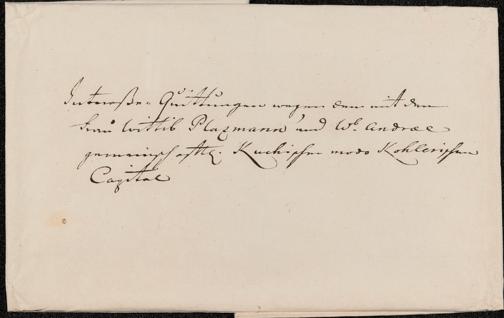 Interoße Quittungen wegen dem mit den
Frau Wittib Plazmann und Wb. Andrae
gemeinschaftl. Kuchischen modo Kohlerischen
Capital